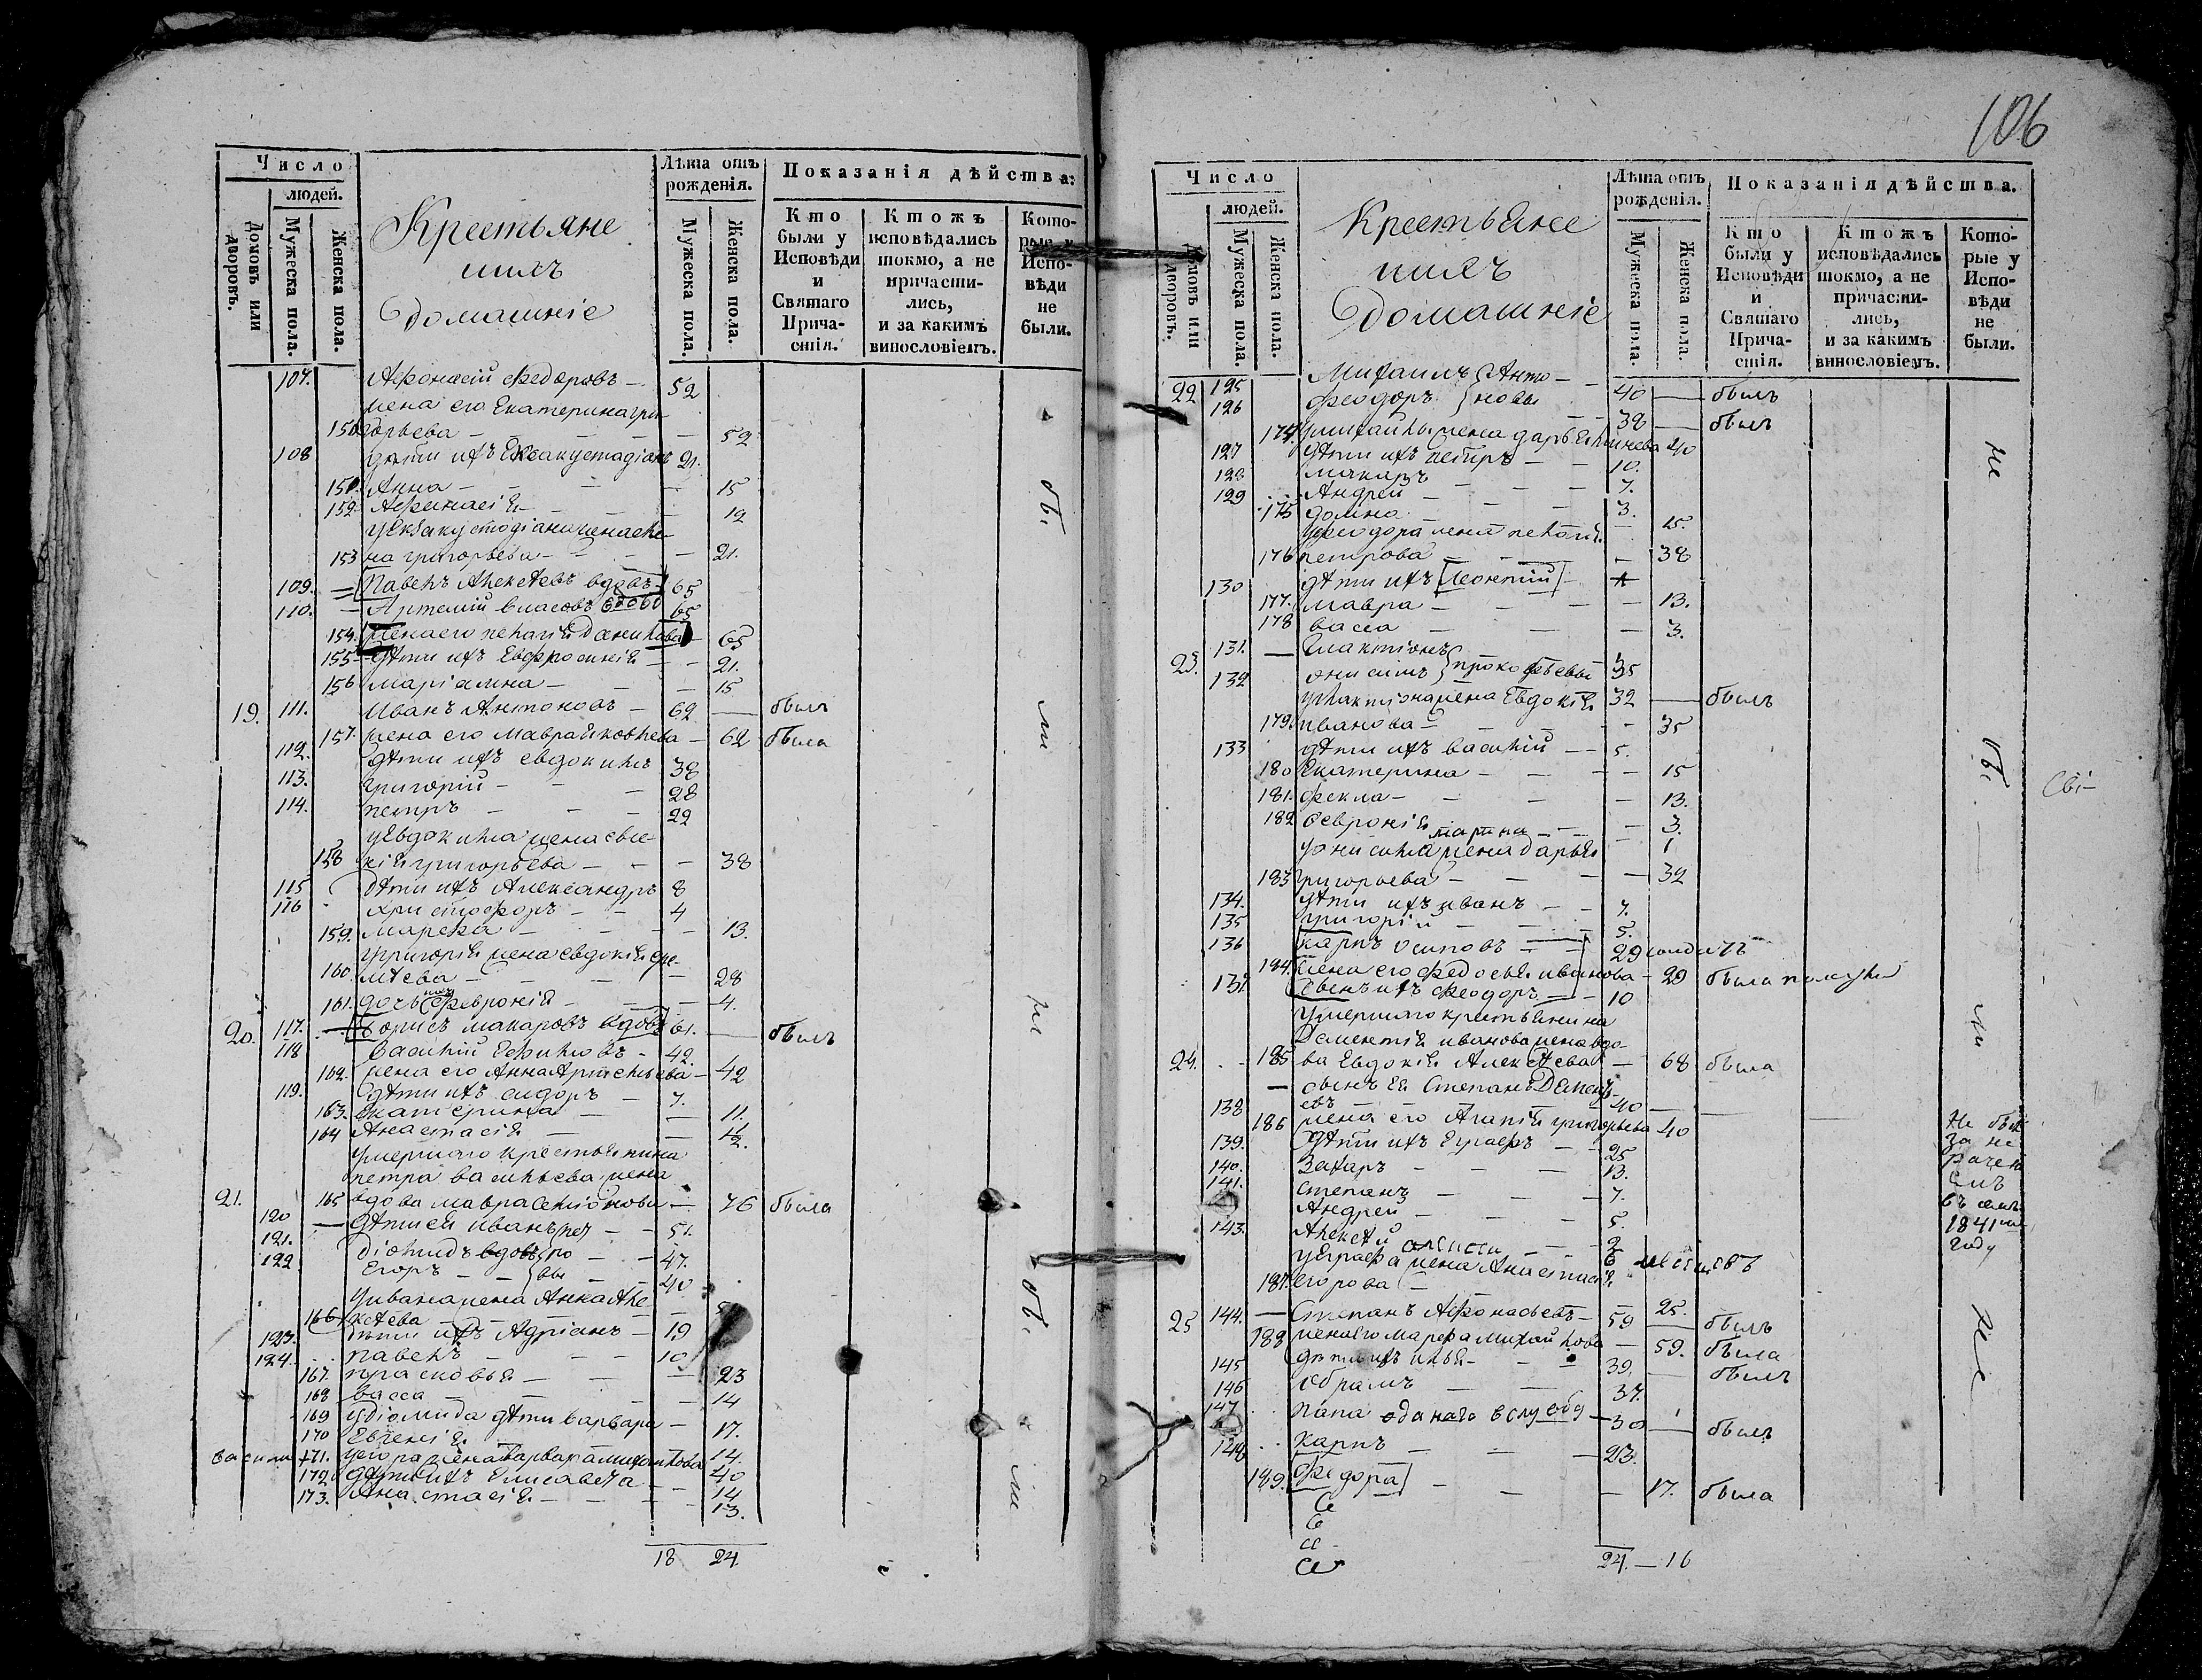 Число
людей.
Домовъ или дворовъ.
Мужеска пола.
Женска пола.
Крестьяне
ихъ
Домашніе
Лѣта отъ
рожденія.
Мужеска пола.
Женска пола.
Показанія дѣйства:
Кто
были у
Исповѣди
и
Святаго
Прича-
стія.
Ктожъ
исповѣдались
токмо, а не
причасти-
лись,
и за какимъ
винословіемъ.
Кото-
рые у
Испо-
вѣди
не
были.
107. Афонасій Федоровъ — 52
жена его Екатерина Гри-
150 горьева — 52
108 дѣти ихъ 21.
151. Анна — 15
152 Афанасія — 12
153 на григорьева — 21.
109. Павелъ Алексѣевъ вдовъ 65
110. Артемій власовъ 65
154. жена его пелагія Данилова 65
155 дѣти ихъ Евфросинія — 21.
156 Маріамна — 15
19. 111. Иванъ Антоновъ — 62 — былъ
157. жена его Мавра Яковлева — 62 была
112. дѣти ихъ евдокимъ 38
113. григорій — 28
114. петръ — 22
у Евдокима жена евге-
158 нія григорьева — 38
115 дѣти ихъ Александръ 8
116 христофоръ — 4
159. Марфа — 13.
у григорія жена евдокія ере-
160 мѣева — 28
161. дочь ихъ февронія — 4.
20. 117. борисъ макаровъ вдовъ 61. — былъ
118 Василій Ефимовъ — 42.
162. жена его Анна Артемьева — 42
119. дѣти ихъ сидоръ — 7.
163. Екатерина — 11.
164 Анастасія — 12.
умершаго крестьянина
петра васильева жена
21. 165 вдова мавра Семіонова — 76 была
120 — дѣти ея иванъ — 51.
121. діомидъ вдовъ — 47.
122 Егоръ — 40
у ивана жена Анна Але-
166 ксѣева —
123. дѣти ихъ Адріанъ — 19
124. павелъ — 10
167. прасковья — 23
168 васса — 14
169 у діомида дѣти варвара — 17.
170 Евгенія 14.
171. у егора жена варвара михайлова 40
172 дѣти ихъ Елисавета — 14
173. Анастасія — 13.
18 24.
не были
106
Число
людей.
Домовъ или дворовъ.
Мужеска пола.
Женска пола.
Крестьяне
ихъ
Домашніе
Лѣта отъ
рожденія.
Мужеска пола.
Женска пола.
Показанія дѣйства.
Кто
были у
Исповѣди
и
Святаго
Прича-
стія.
Ктожъ
исповѣдались
токмо, а не
причасти-
лись,
и за какимъ
винословіемъ.
Кото-
рые у
Испо-
вѣди
не
были.
22 125 Михаилъ Анто- 40 — былъ
126 Феодоръ новы 38 — былъ
174 у михайлы жена дарья 40
127 дѣти ихъ петръ — 10.
128 Макаръ — 7.
129 Андрей — 3.
175 домна — 15.
у феодора жена пелагія
176 петрова — 38
130 дѣти ихъ Леонтій
177. мавра — 13.
178 васса — 3.
23. 131. Галактіонъ
132 онисимъ прокофьевы 35
32 — былъ
у галактіона жена Евдокія
179. иванова — 35
133 дѣти ихъ василій — 5.
180 екатерина — 15
181. фекла — 13.
182 февронія — 3.
марина 1
у онисима жена дарья
183 григорьева — 32
134. дѣти ихъ иванъ — 7.
135 григорій — 5.
136 карпъ осиповъ — 29 солдатъ
184. жена его федосья иванова — 29 была
137. сынъ ихъ феодоръ — 10
умершаго крестьянина
Дементія иванова жена вдо-
24. 185 ва Евдокія Алексѣева — 68 была
сынъ ея Степанъ Дементь-
138 евъ — 40
186 жена его Агапія григорьева 40
139. дѣти ихъ Еграфъ — 25
140. Захаръ — 13.
141. степанъ — 7.
Андрей — 5.
143. Алексѣй — 2
6 мѣсяцовъ
у Еграфа жена Анастасія
187. егорова — 25.
25 144. — Степанъ Афонасьевъ — 59 — былъ
188 жена его Марфа Михайлова — 59. была
145 дѣти ихъ илья — 39. — былъ
146 Абрамъ — 37.
147 30 — былъ
148 карпъ — 23.
189. федора — 17. была
24. — 16
не были
Не былъ
за не
въ семъ
1841мъ
году